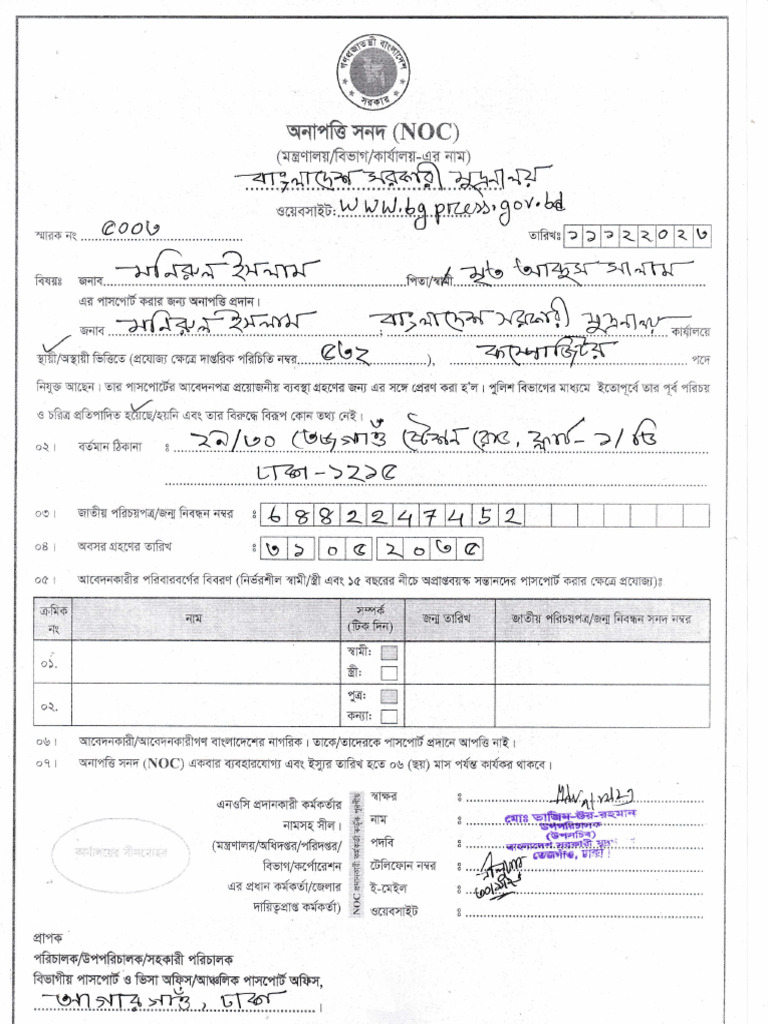 গণপ্রজাতন্ত্রী বাংলাদেশ
সরকার
অনাপত্তি সনদ (NOC)
(মন্ত্রণালয়/বিভাগ/কার্যালয়-এর নাম)
বাংলাদেশ সরকারী মুদ্রণালয়
ওয়েবসাইট: www.bgpress.gov.bd
স্মারক নং ৫০০৬ তারিখঃ ১১১২২০২৩
বিষয়ঃ জনাব মনিরুল ইসলাম পিতা/স্বামী মৃত আব্দুস সালাম
এর পাসপোর্ট করার জন্য অনাপত্তি প্রদান।
জনাব মনিরুল ইসলাম বাংলাদেশ সরকারী মুদ্রণালয় কার্যালয়ে
স্থায়ী/অস্থায়ী ভিত্তিতে (প্রযোজ্য ক্ষেত্রে দাপ্তরিক পরিচিতি নম্বর ৫৬২), কম্পোজিটর পদে
নিযুক্ত আছেন। তার পাসপোর্টের আবেদনপত্র প্রয়োজনীয় ব্যবস্থা গ্রহণের জন্য এর সঙ্গে প্রেরণ করা হ'ল। পুলিশ বিভাগের মাধ্যমে ইতোপূর্বে তার পূর্ব পরিচয়
ও চরিত্র প্রতিপাদিত হয়েছে/হয়নি এবং তার বিরুদ্ধে বিরূপ কোন তথ্য নেই।
০২। বর্তমান ঠিকানা : ২৯/৩০ তেজগাঁও স্টেশন রোড, ফ্ল্যাট- ১/ডি
ঢাকা-১২১৫
০৩। জাতীয় পরিচয়পত্র/জন্ম নিবন্ধন নম্বর : 6882247452
০৪। অবসর গ্রহণের তারিখ : ৩১০৫২০৩৫
০৫। আবেদনকারীর পরিবারবর্গের বিবরণ (নির্ভরশীল স্বামী/স্ত্রী এবং ১৫ বছরের নীচে অপ্রাপ্তবয়স্ক সন্তানদের পাসপোর্ট করার ক্ষেত্রে প্রযোজ্য)ঃ
ক্রমিক নং নাম সম্পর্ক (টিক দিন) জন্ম তারিখ জাতীয় পরিচয়পত্র/জন্ম নিবন্ধন সনদ নম্বর
০১. স্বামী:
স্ত্রী:
০২. পুত্র:
কন্যা:
০৬। আবেদনকারী/আবেদনকারীগণ বাংলাদেশের নাগরিক। তাকে/তাদেরকে পাসপোর্ট প্রদানে আপত্তি নাই।
০৭। অনাপত্তি সনদ (NOC) একবার ব্যবহারযোগ্য এবং ইস্যুর তারিখ হতে ০৬ (ছয়) মাস পর্যন্ত কার্যকর থাকবে।
এনওসি প্রদানকারী কর্মকর্তার
নামসহ সীল।
(মন্ত্রণালয়/অধিদপ্তর/পরিদপ্তর/
বিভাগ/কর্পোরেশন
এর প্রধান কর্মকর্তা/জেলার
দায়িত্বপ্রাপ্ত কর্মকর্তা)
কার্যালয়ের সীলমোহর
NOC প্রদানকারী কর্মকর্তা কর্তৃক পূরণীয়
স্বাক্ষর :
নাম : মোঃ তাজিম-উর-রহমান
উপপরিচালক
(উপসচিব)
পদবি : বাংলাদেশ সরকারী মুদ্রণালয়
তেজগাঁও, ঢাকা।
টেলিফোন নম্বর :
ই-মেইল :
ওয়েবসাইট :
প্রাপক
পরিচালক/উপপরিচালক/সহকারী পরিচালক
বিভাগীয় পাসপোর্ট ও ভিসা অফিস/আঞ্চলিক পাসপোর্ট অফিস,
আগারগাঁও, ঢাকা।